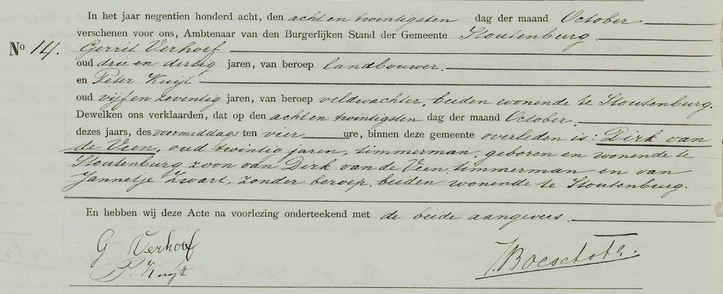 In het jaar negentien honderd acht, den acht en twintigsten dag der maand October
verschenen voor ons, Ambtenaar van den Burgerlijken Stand der Gemeente Stoutenburg
No 14. Gerrit Verhoef
oud drie en dertig jaren, van beroep landbouwer
en Peter Kuijt
oud vijf en zeventig jaren, van beroep veldwachter, beiden wonende te Stoutenburg.
Dewelken ons verklaarden, dat op den acht en twintigsten dag der maand October
dezes jaars, des voormiddags ten vier ure, binnen deze gemeente overleden is: Dirk van
de Veen, oud twintig jaren, timmerman, geboren en wonende te
Stoutenburg zoon van Dirk van de Veen timmerman en van
Jannetje Zwart, zonder beroep, beiden wonende te Stoutenburg.
En hebben wij deze Acte na voorlezing onderteekend met de beide aangevers.
G Verhoef
P. Kuijt